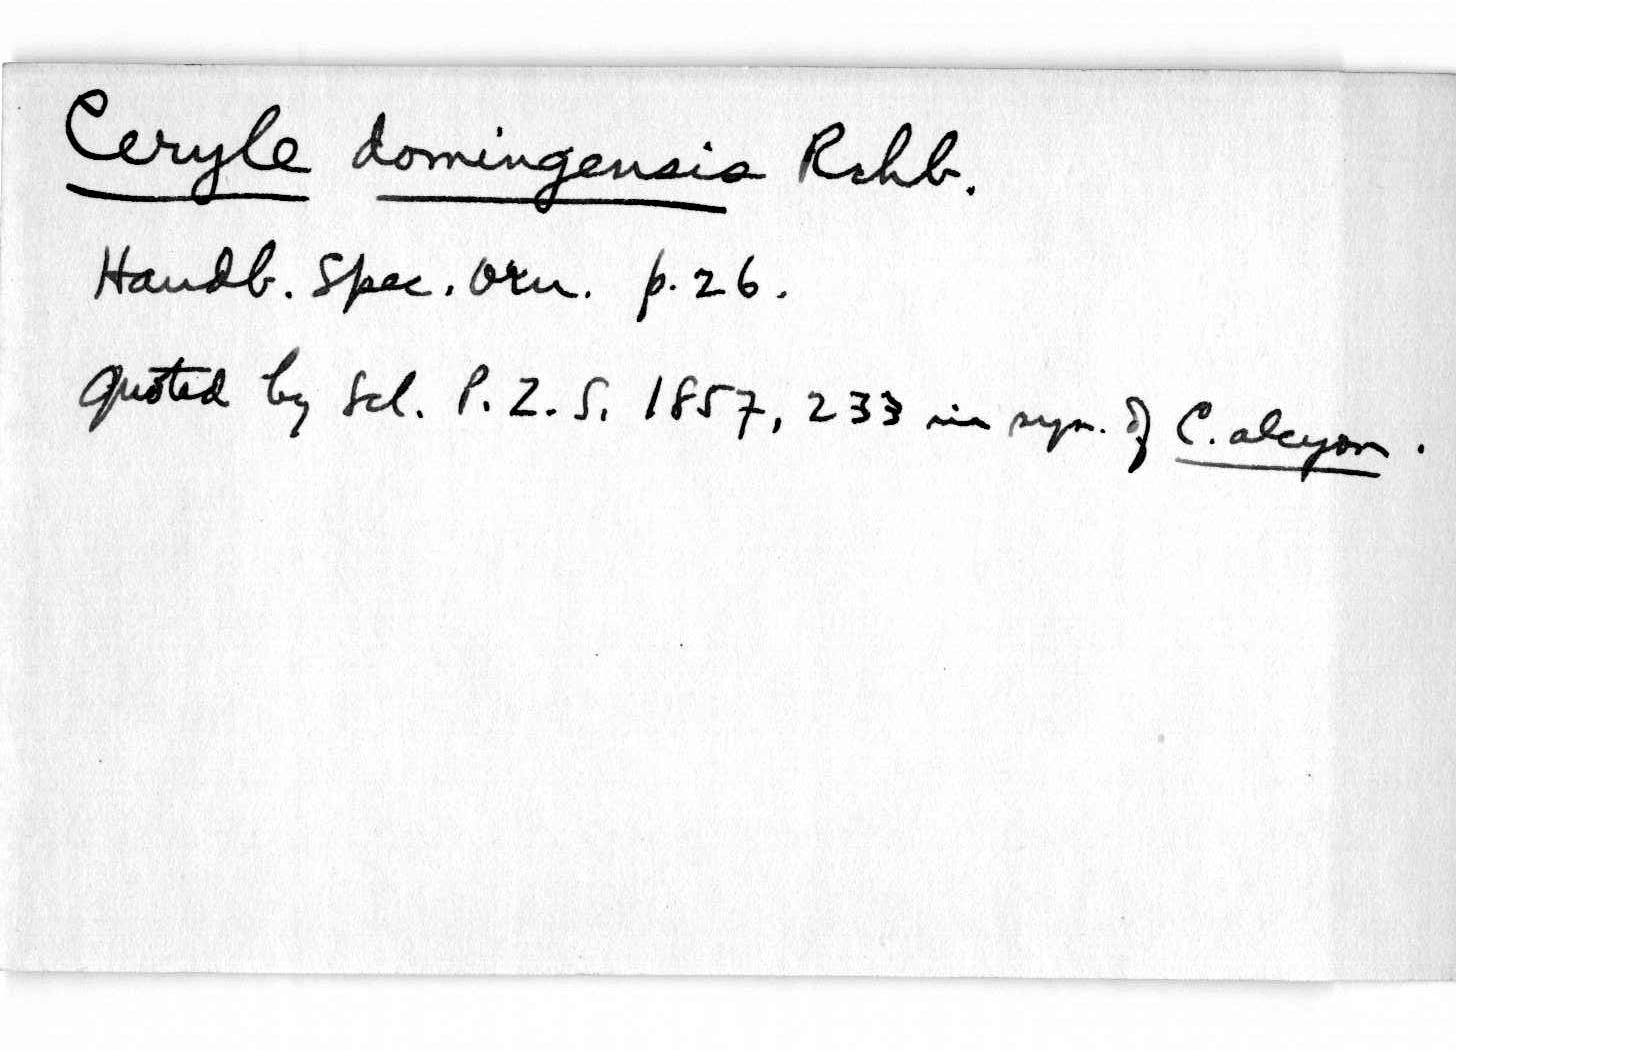 Ceryle domingensis Rchb.
Handb. Spec. Orn. p. 26.
quoted by Scl. P. Z. S. 1857, 233 in syn. of C. alcyon.